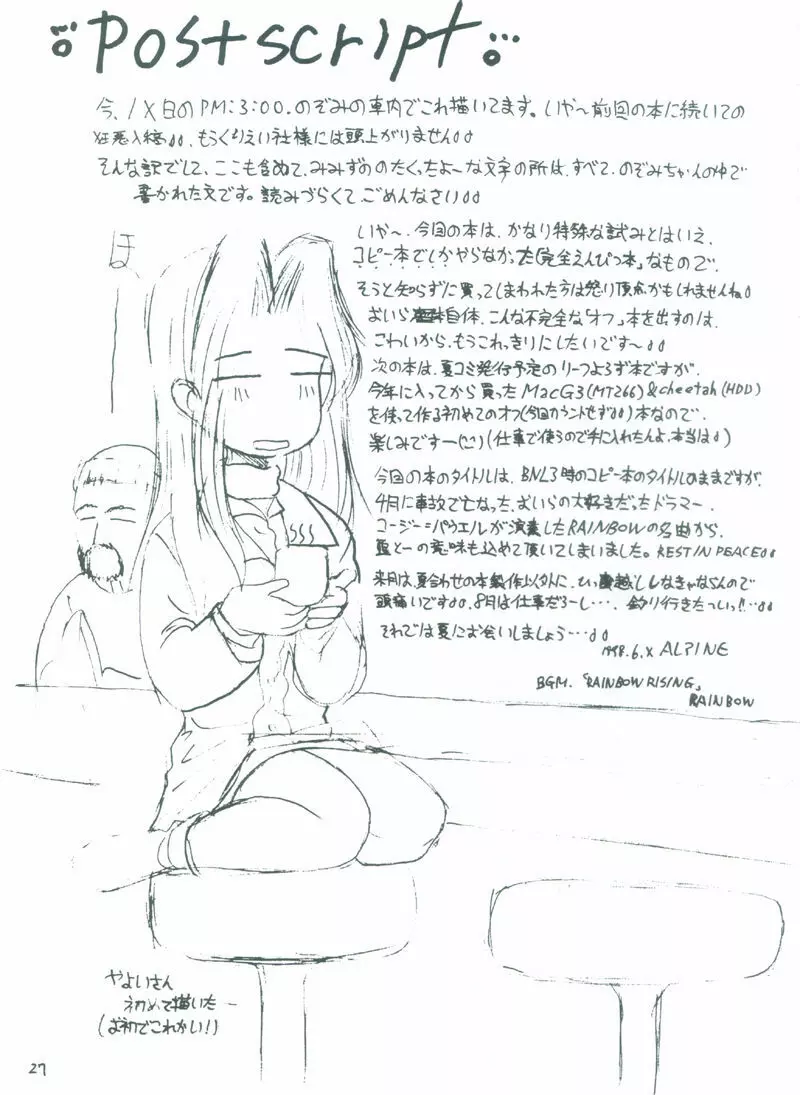 Postscript
今、1X日のPM:3:00.のぞみの車内でこれ描いてます。いや〜前回の本に続いての
入稿。もうくりえい社様には頭上がりません
そんな訳でして、ここも含めて、みみずののたくったよーな文字の所は、すべて、のぞみちゃんの中で
書かれた文です。読みづらくてごめんなさい
いや〜、今回の本は、かなり特殊な試みとはいえ、
コピー本でしかやらなかった「完全えんぴつ本」なもので、
そうと知らずに買ってしまわれた方は怒り頂点かもしれませんね
おいら自体、こんな不完全な「オフ」本を出すのは、
こわいから、もうこれっきりにしたいです〜
次の本は、夏コミ発行予定のリーフよろず本ですが、
今年に入ってから買ったMacG3(MT266)&cheetah(HDD)
を使って作る初めてのオフ(今回カウントせず)本なので、
楽しみですー(仕事で使うので手に入れたんよ、本当は)
今回の本のタイトルは、BNL3時のコピー本のタイトルのままですが、
4月に事故で亡なった、おいらの大好きだったドラマー
コージー=パウエルが演奏したRAINBOWの名曲から、
追とーの意味も込めて頂いてしまいました。REST IN PEACE
来月は、夏合わせの本製作以外に、ひっ越ししなきゃならんので
頭痛いです、8月は仕事だろーし…、釣り行きたっい!!…
それでは夏にお会いしましょう…
1998.6.X ALPINE
BGM.「RAINBOW RISING」
RAINBOW
ほ
やよいさん
初めて描いたー
(お初でこれかい!)
27